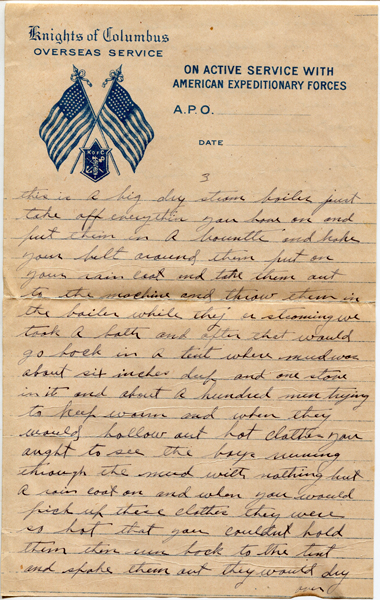 Knights of Columbus
OVERSEAS SERVICE
ON ACTIVE SERVICE WITH
AMERICAN EXPEDITIONARY FORCES
A.P.O.
DATE
K of C
3
this is a big dry steam boiler just
take off everythin you have on and
put them in a bountle and take
your belt around them put on
your rain coat and tote them out
to the machine and throw them in
the boiler while they er steaming we
took a bath and after that would
go back in a tent where mud was
about six inches deep and one stove
in it and about a hundred men trying
to keep warm and when they
would hollow out hot clothes you
aught to see the boys running
through the mud with nothing but
a rain coat on and when you would
pick up these clothes they were
so hot that you couldnt hold
them then run back to the tent
and shake them out they would dry
over